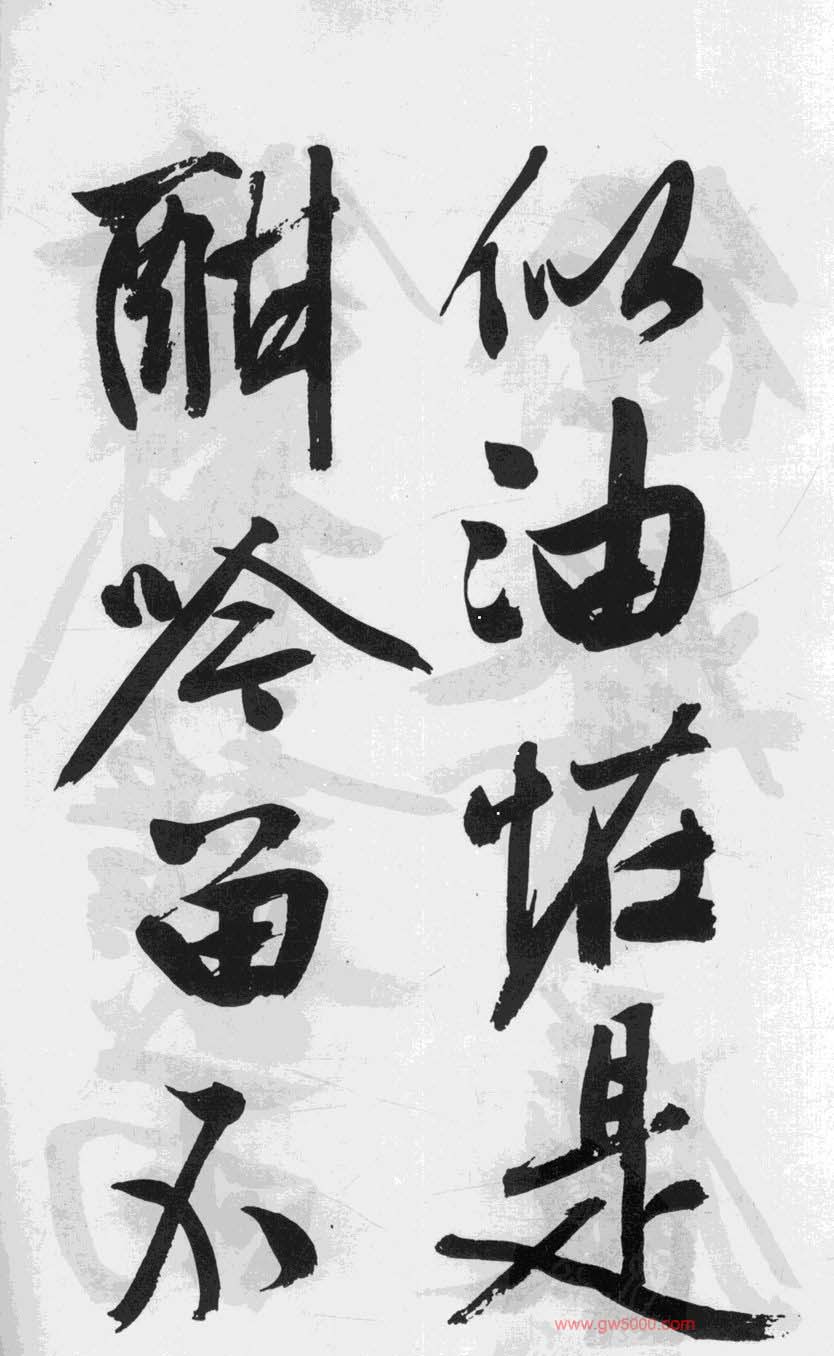 似油恠是
酣吟留不
www.gw5000.com